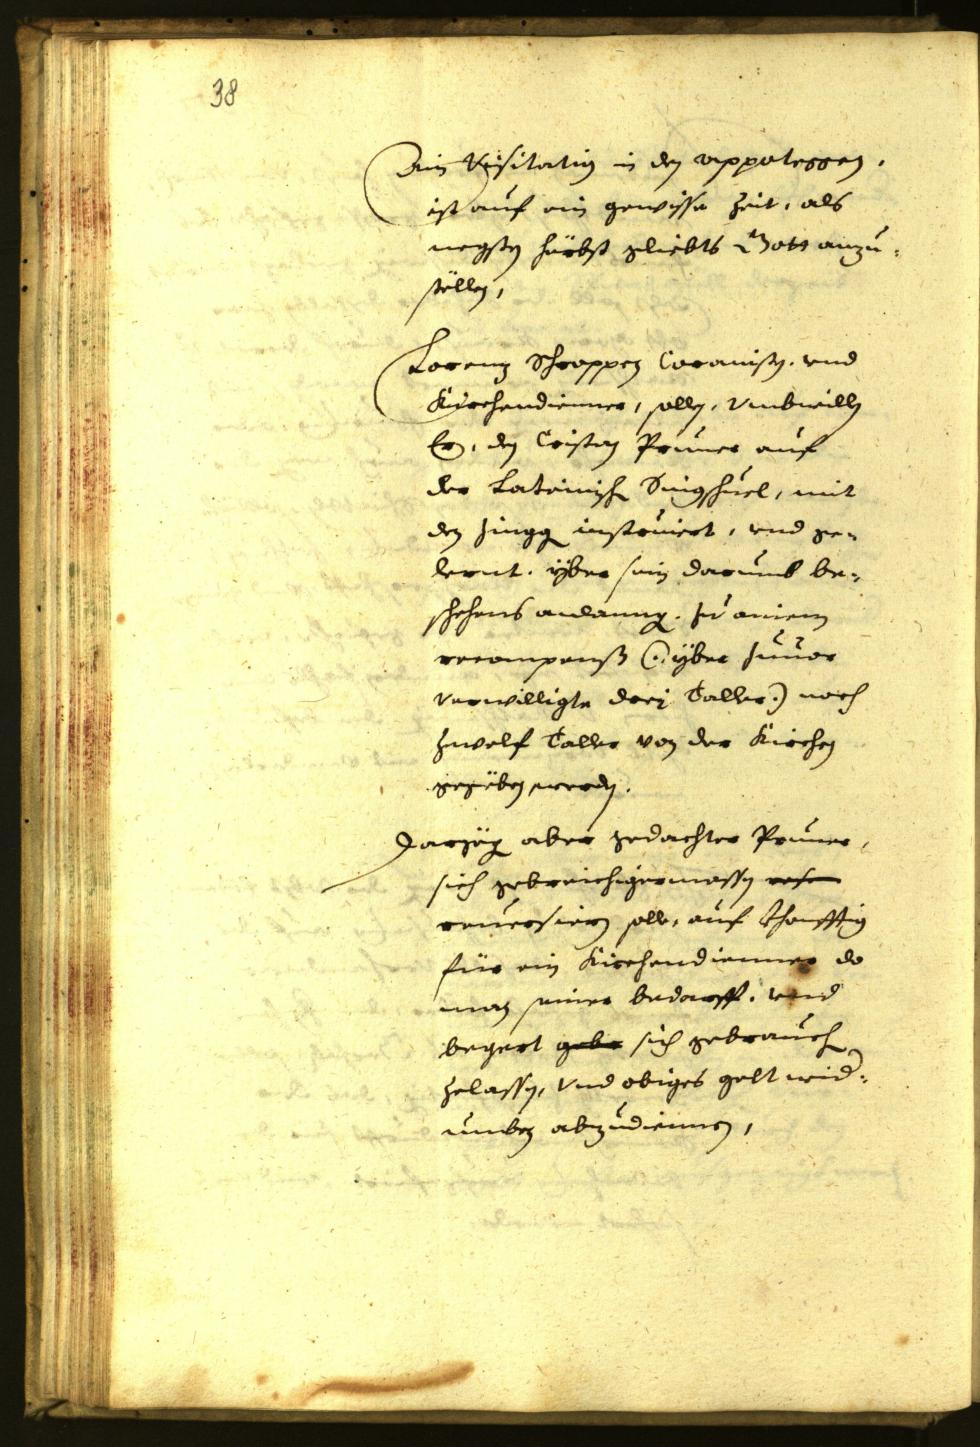 38
Ain Visitation in den Appoteggen,
ist auf ein gewisse Zeit, als
negsten hörbst geliebts Gott anzu-
stellen,
Lorenz Schroppen Coranisten vnd
Kirchendienner, sollen, vmbwillen
Er, den Cristan Pruner auf
der Lateinisch Singschuel, mit
den Zinggen instruiert, vnd ge-
lernt. yber sein darumb be-
schehens anlanng. zu ainem
recompenß (: yber zuuor
verwilligte drej Taller:) noch
zwelf Taller von der Kirchen
gegeben werden.
Dargegen aber gedachter Pruner,
sich gebreichigermassen
reuersiern solle, auf khonfftig
für ein Kirchendienner do
man seiner bedarff, vnd
begert sich gebrauchen
zelassen, vnd obiges gelt wid-
umben abzudiennen,